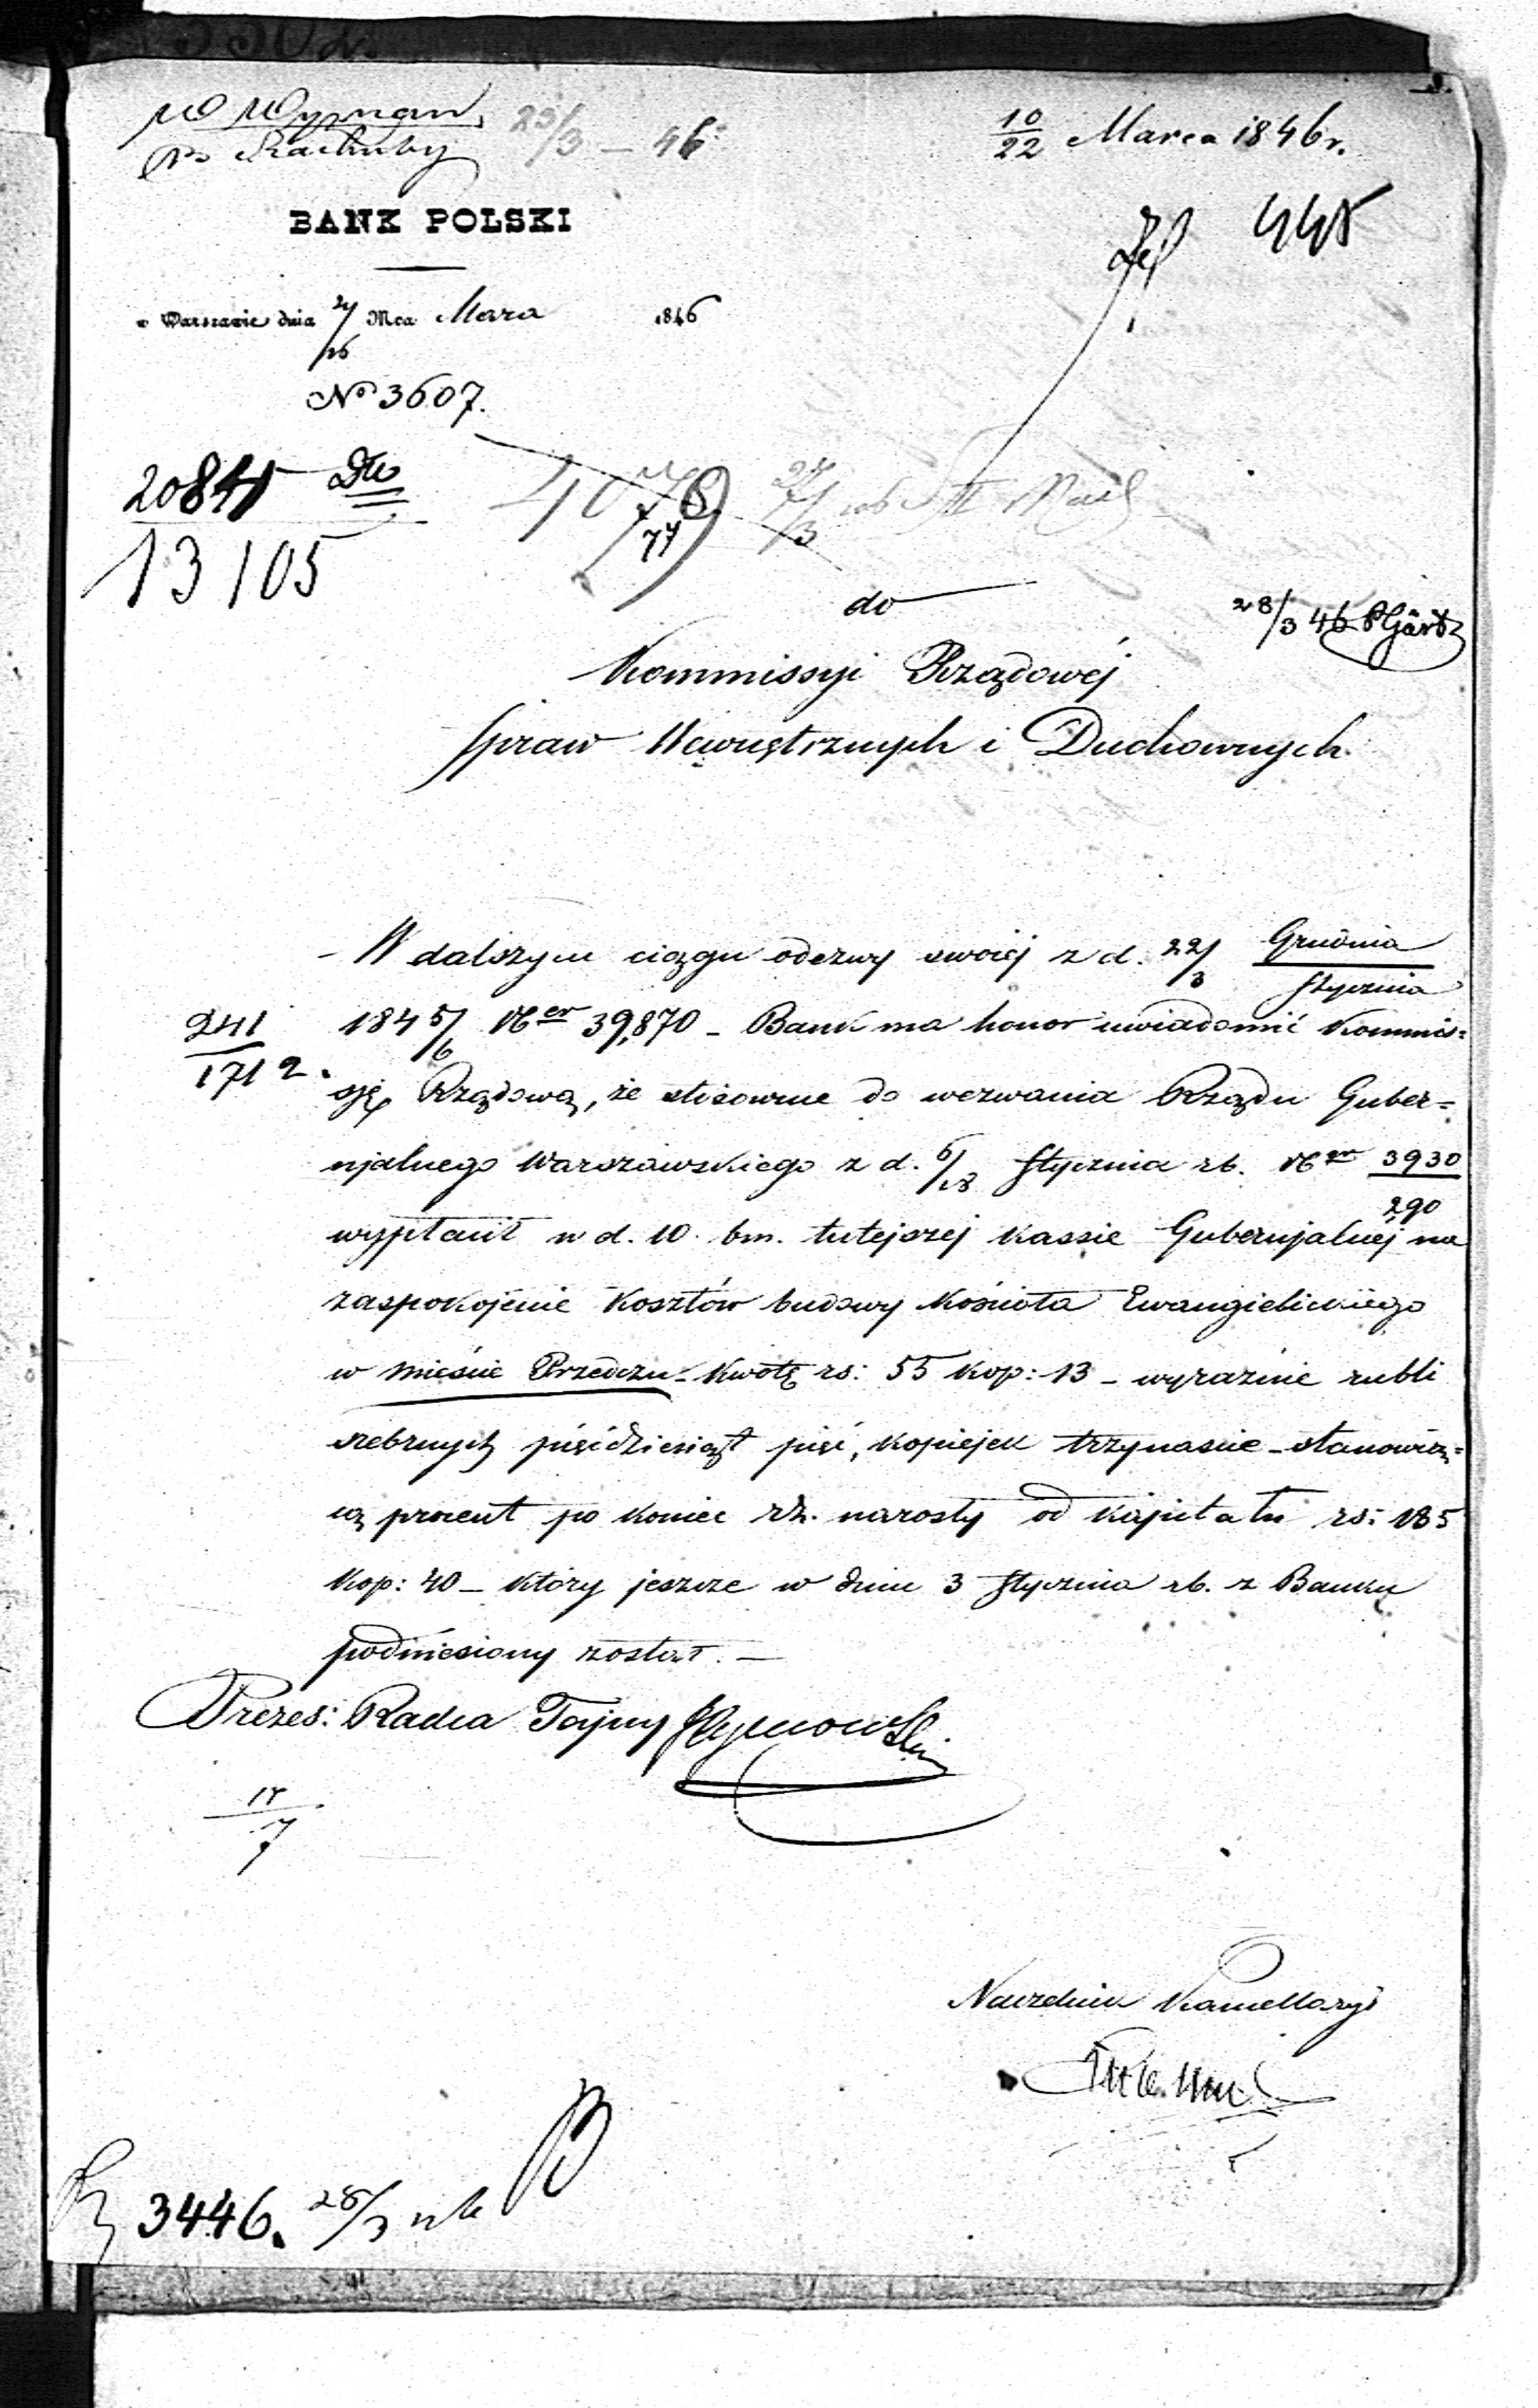 10/22 Marca 1846 r.
23/3 – 46
BANK POLSKI
445
w Warszawie dnia /16 Mca Marca 1846
No 3607.
20845
13105
4078
do
28/3 46
Kommissyi Rządowéj
Spraw Wewnętrznych i Duchownych.
W dalszym ciągu odezwy swoiéj z d. 22/3 Grudnia/Stycznia
241/1712.
1845/6 Ner 39,870 – Bank ma honor uwiadomić Kommis=
sję Rządową, że stósownie do wezwania Rządu Guber=
njalnego Warszawskiego z d. 6/18 Stycznia rb. Ner 3930/290
wypłacił w d. 10 bm. tutejszéj Kassie Gubernjalnéj na
zaspokojenie kosztów budowy Kościoła Ewangielickiego
w mieście Przedczu – kwotę rs: 55 kop: 13 – wyraźnie rubli
srebrnych pięćdziesiąt pięć, kopiejek trzynaście – stanowią=
cą procent po koniec rz. narosły od kapitału rs: 185
kop: 40 – który jeszcze w dniu 3 Stycznia rb. z Banku
podniesiony został. –
Prezes: Radca Tajny
Naczelnik Kancellaryi
3446. 28/3